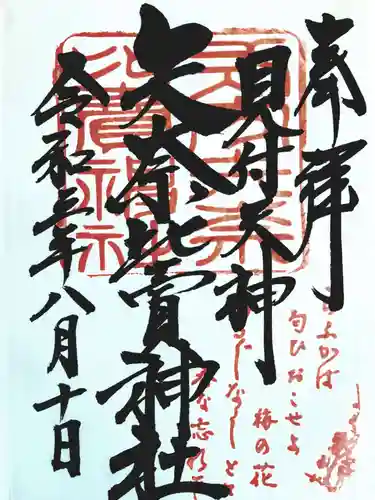 奉拝
見付天神
矢奈比賣神社
令和三年八月十日
ふかば
匂ひおこせよ
梅の花
なしと
な忘れ